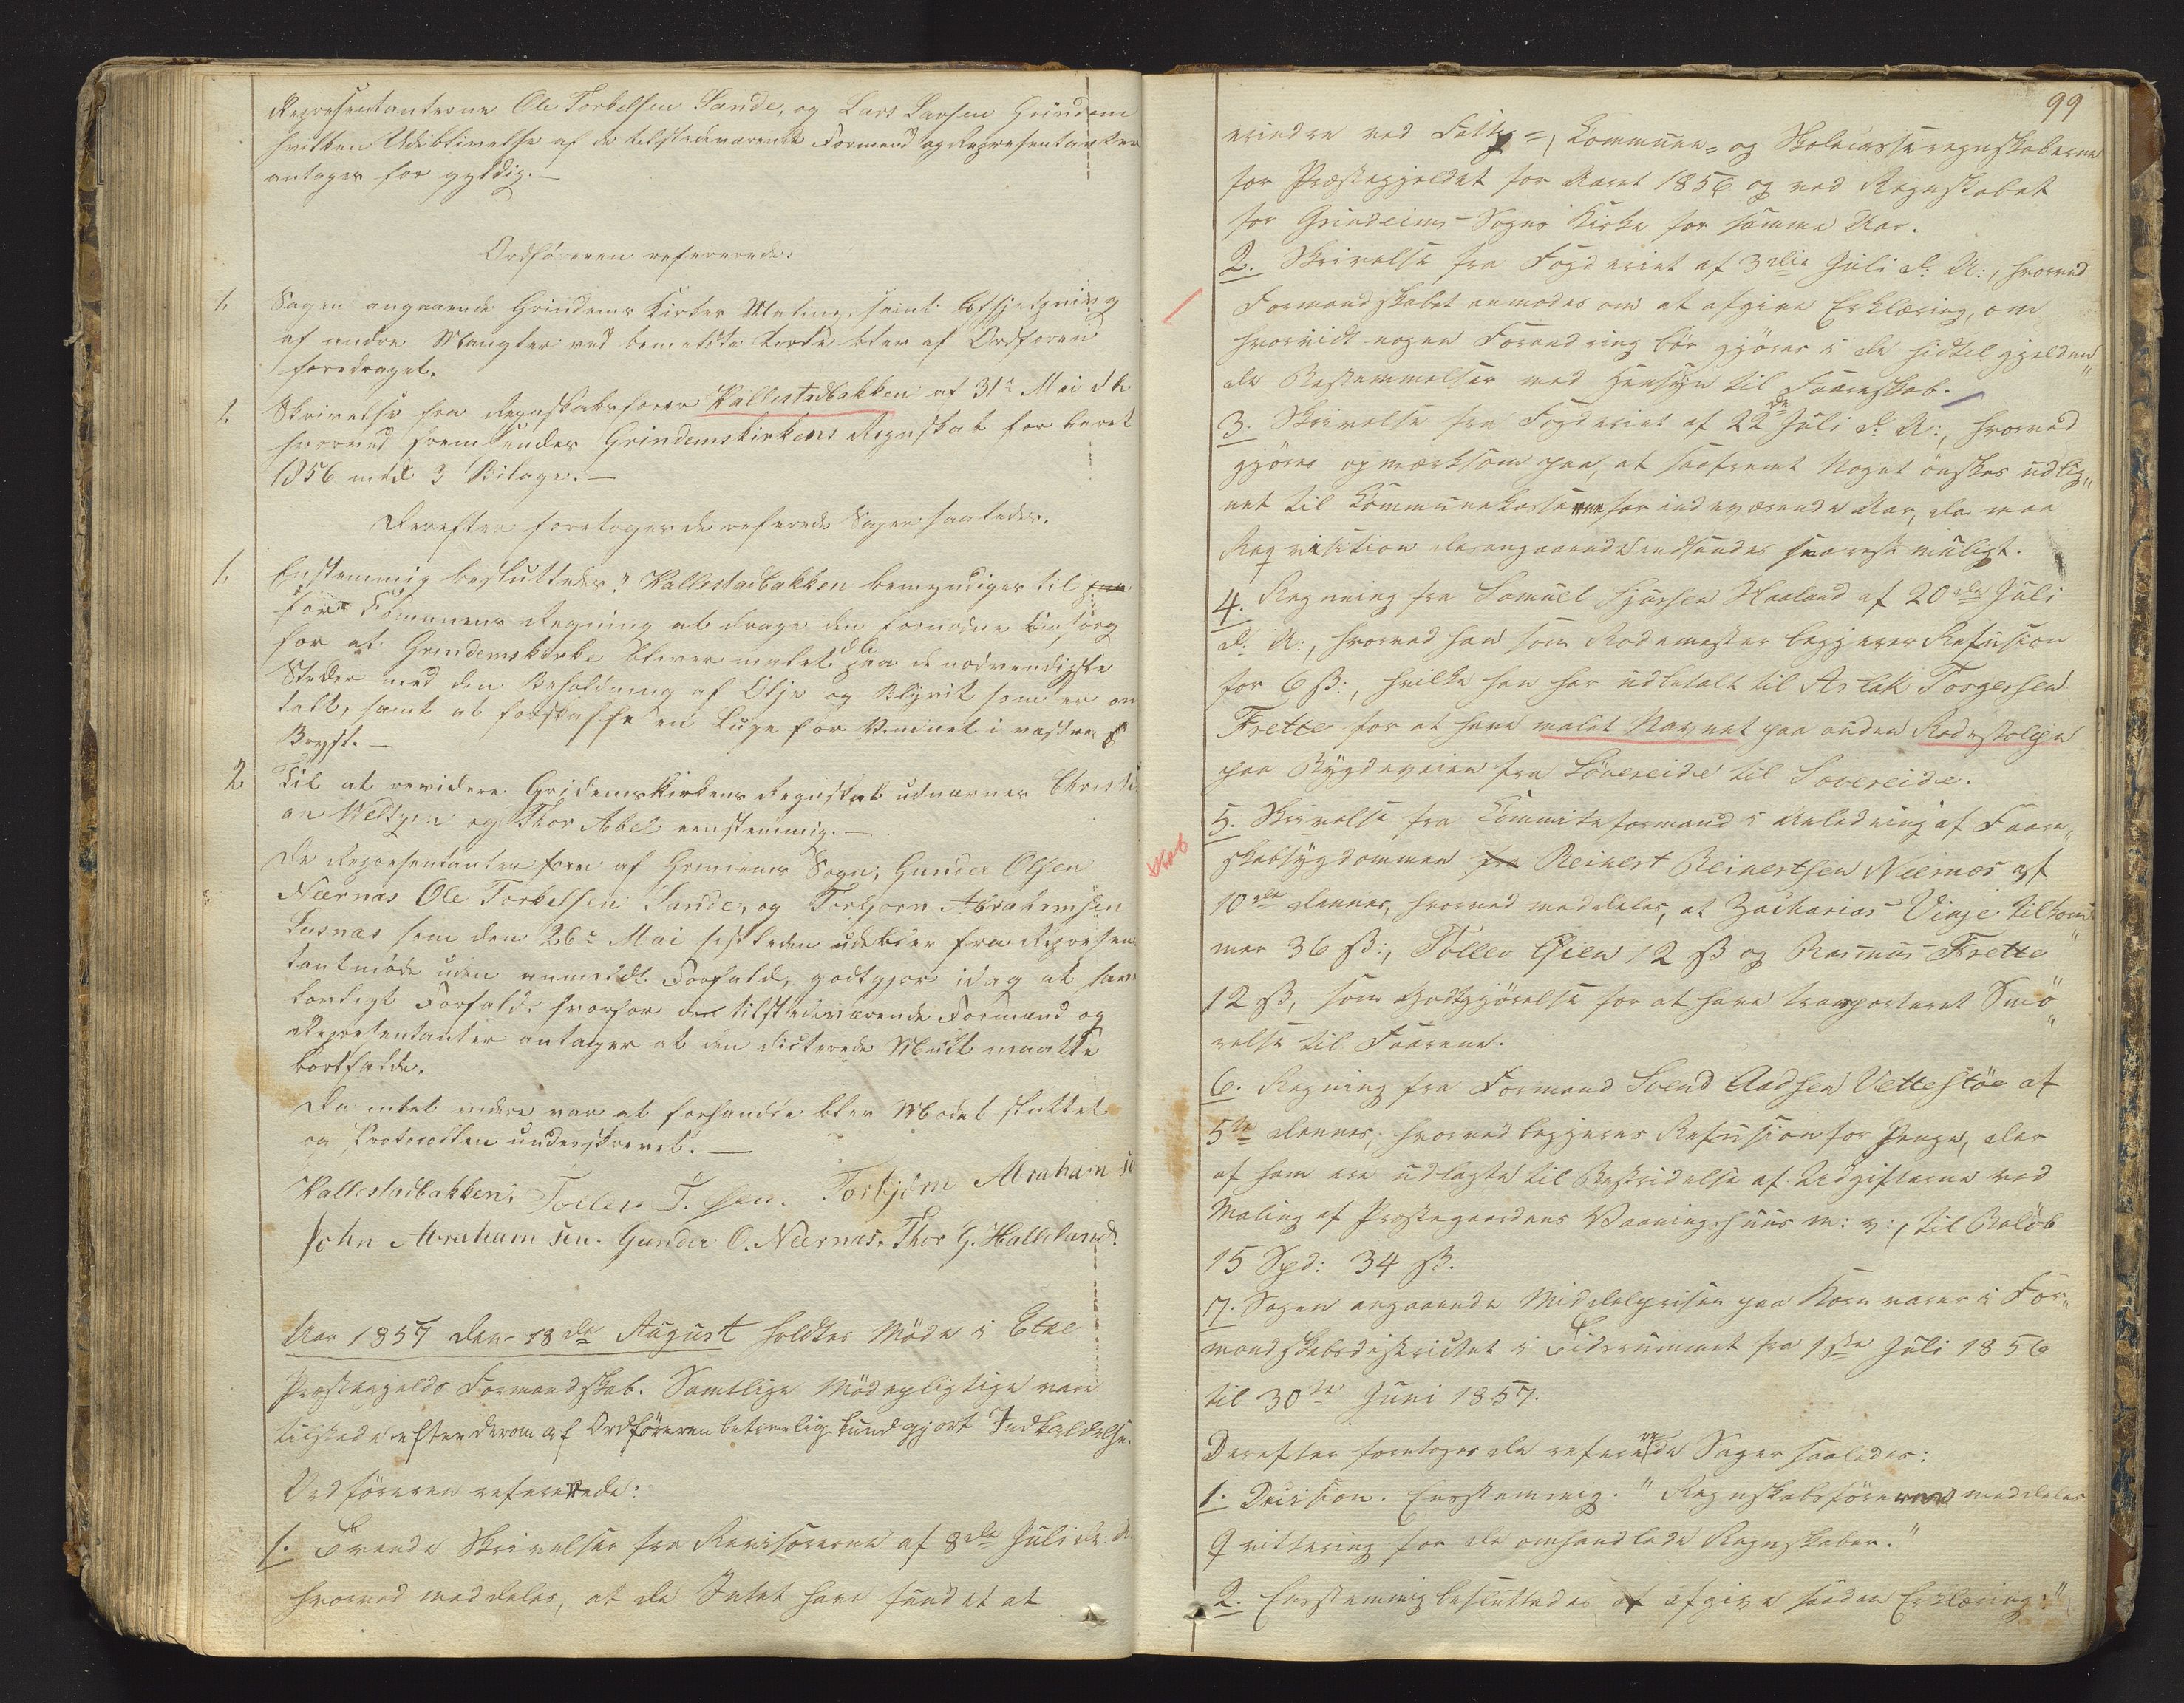 Repræsentanterne Ole Torkelsen Sande, og Lars Larsen Grindem
hvilken Udeblivelse af de tilstedeværende Formænd og Repræsentanter
antages for gyldig.—
Ordføreren refererede:
1. Sagen angaaende Grindems Kirkes Maling, samt Afhjelpning
af andre Mangler ved bemeldte Kirke blev af Ordføreren
foredraget.
2. Skrivelse fra Regnskabsfører Vallestadbakken af 31te Mai d A
hvorved fremsendes Grindemskirkens Regnskab for Aaret
1856 med 3 Bilage.—
Derefter foretoges de referede Sager saaledes.
1. Enstemmig besluttedes: "Vallestadbakken bemyndiges til
for Communens Regning at drage den fornødne Omsorg
for at Grindemskirke bliver malet paa de nødvendigste
Steder med den Beholdning af Olje og Blyvit som er om
talt, samt at forskaffe en Luge for Vinduet i vestre
Bryst.—
2 Til at revidere Gridemskirkens Regnskab udnævnes Christi
an Weltzin og Thor Abel eenstemmig.—
De Repræsentanter fra af Grindems Sogn, Gunder Olsen
Nærnæs Ole Torkelsen Sande, og Torbjørn Abrahamsen
Tusnæs som den 26de Mai sistleden udeblev fra Repræsen
tantmøde uden anmeldt Forfald, godtgjør idag at have
lovligt Forfald, hvorfor de tilstedeværende Formænd og
Repræsentanter antager at den dicterede Mult maatte
bortfalde.
Da intet videre var at forhandle blev Mødet sluttet
og Protocollen underskrevet.—
Vallestadbakken. Tollev T. sen. Torbjørn Abraham se
John Abrahamsen. Gunder O. Nærnæs. Thor G. Halleland.
Aar 1857 den 18de August holdtes Møde i Etne
Præstegjelds Formandskab. Samtlige Mødepligtige vare
tilstede efter derom af Ordføreren betimelig kundgjort Indkaldelse.
Ordføreren refererede:
1. Tvende Skrivelser fra Revisorerne af 8de Juli d: A
hvorved meddeles, at de Intet have fundet at
99
erindre ved Fattig-, Commune- og Skolecasseregnskaberne
for Præstegjeldet for Aaret 1856 og ved Regnskabet
for Grindeims-Sogns Kirke for samme Aar.
2. Skrivelse fra Fogderiet af 3die Juli d: A:, hvorved
Formandskabet anmodes om at afgive Erklæring, om
hvorvidt nogen Forandring bør gjøres i de hidtil gjelden"
de Bestemmelser med Hensyn til Faareskab.
3. Skrivelse fra Fogderiet af 22de Juli d: A:, hvorved
gjøres opmærksom paa, at saafremt Noget ønskes udlig"
net til Communekassen for indeværende Aar, da maa
Reqvisition desangaaende indsendes snarest muligt.
4. Regning fra Samuel Sjursen Haaland af 20de Juli
d: A:, hvorved han som Rodemester begjerer Refusion
for 6 ß:, hvilke han har udbetalt til Aslak Torgersen
Frette for at have malet Navnet paa anden Rodestolpe
paa Bygdeveien fra Løvereide til Sovereide.
5. Skrivelse fra Committeformand i Anledning af Faare"
skabsygdommen fra Reinert Reinertsen Nærnæs af
skab
10de dennes, hvorved meddeles, at Zacharias Vinje tilkom"
mer 36 ß:, Tollev Gien 12 ß og Rasmus Frette
12 ß, som Godtgjørelse for at have transporteret Smø"
relse til Faarene.
6. Regning fra Formand Svend Aadsen Vettestøe af
5te dennes, hvorved begjeres Refusion for Penge, der
af ham ere udlagte til Bestridelse af Udgifterne ved
Maling af Præstegaardens Vaaningshuus m: v:, til Beløb
15 Spd: 34 ß.
7. Sagen angaaende Middelprisen paa Kornvarer i For"
mandskabsdistrictet i Tidsrummet fra 1ste Juli 1856
til 30te Juni 1857.
Derefter foretoges de refererede Sager saaledes:
1. Decision. Enstemmig. "Regnskabsførerne meddeles
Qvittering for de omhandlede Regnskaber."
2. Enstemmig besluttedes at afgive saadan Erklæring:"